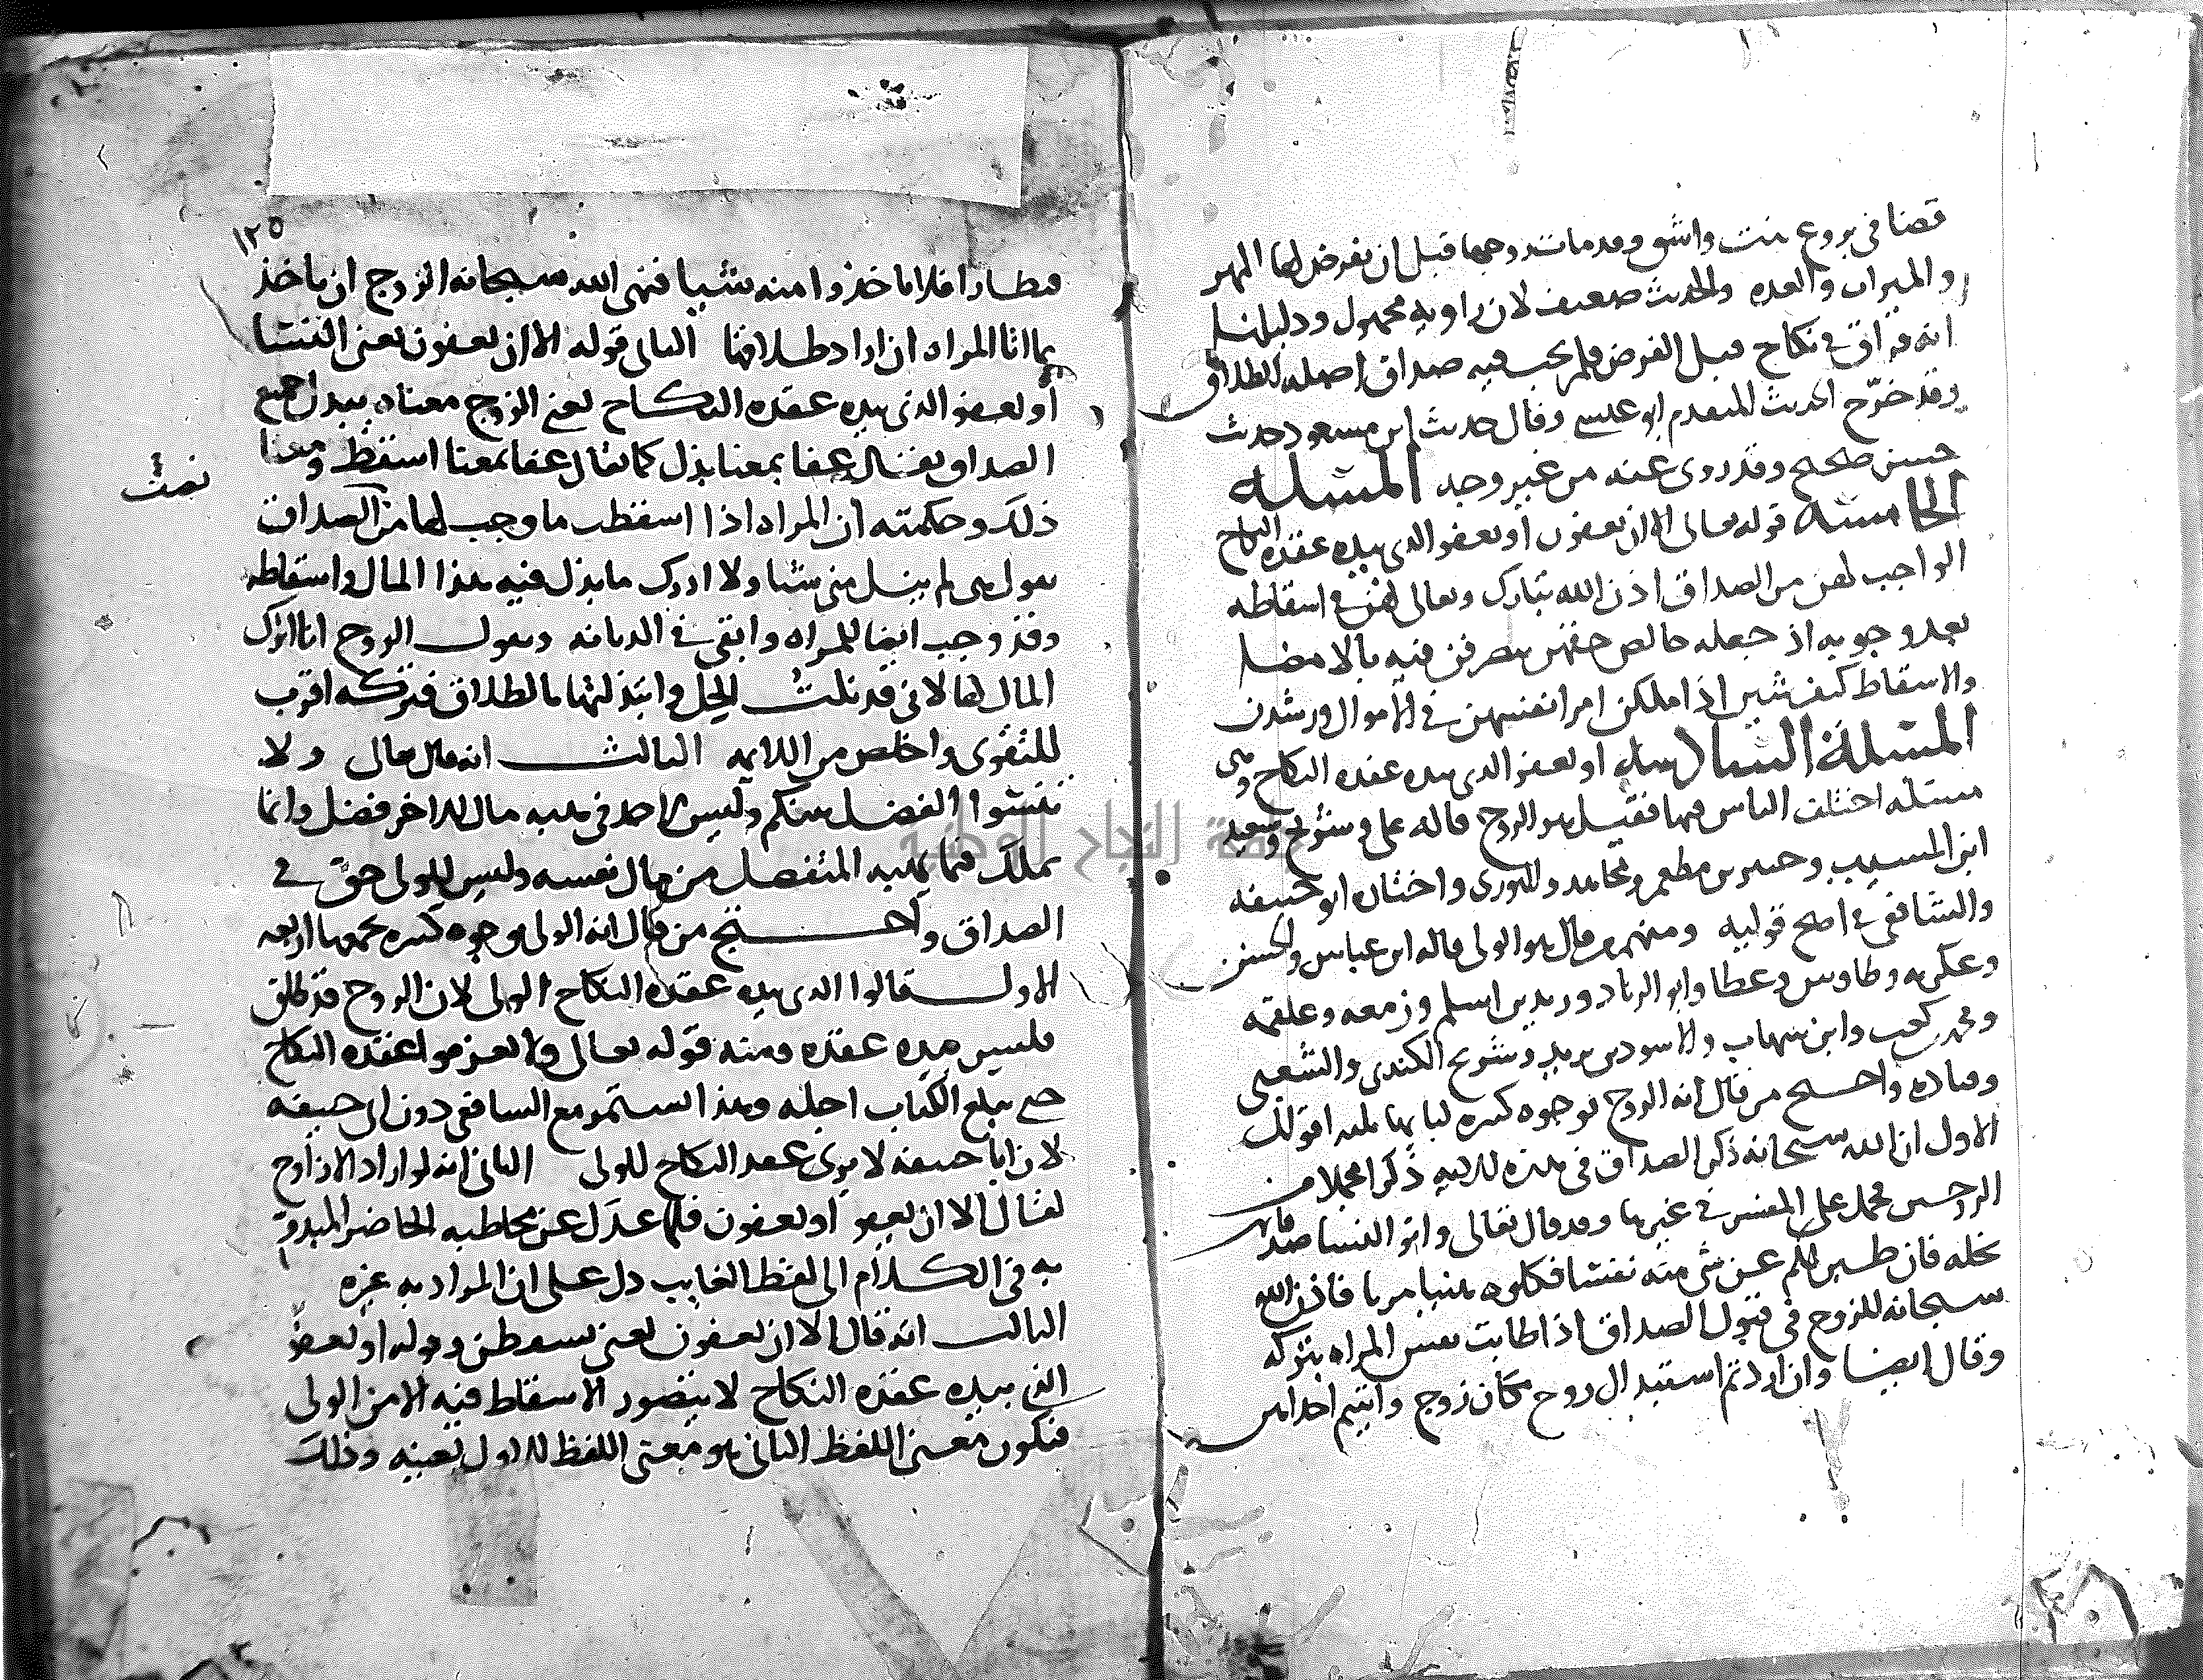 قضا في بروع بنت واشق وقد مات زوجها قبل ان يفرض لها المهر
والميراث والعده والحديث ضعيف لان راويه مجهول ودليلنا
انه فراق في نكاح قبل الفرض فلم يجب فيه صداق اصله الطلاق
وقد خرّج الحديث المتقدم ابو عيسى وقال حديث ابن مسعود حديث
حسن صحيح وقد روى عنه من غير وجه المسئله
الخامسه قوله تعالى الا ان يعفون او يعفو الذي بيده عقده النكاح
الواجب لهن من الصداق اذن الله تبارك وتعالى لهن في اسقاطه
بعد وجوبه اذ جعله خالص حقهن يتصرفن فيه بالامضا
والاسقاط كيف شين اذا ملكن امر انفسهن في الاموال ورشدن
المسئلة السادسه او يعفو الذي بيده عقده النكاح وهي
مسئله اختلف الناس فيها فقيل هو الزوج قاله علي وشريح وسعيد
ابن المسيب وجبير بن مطعم ومجاهد والثوري واختاره ابو حنيفه
والشافعي في اصح قوليه ومنهم من قال هو الولي قاله ابن عباس والحسن
وعكرمه وطاوس وعطا وابو الزناد وزيد بن اسلم وزمعه وعلقمه
ومحمد بن كعب وابن شهاب والاسود بن يزيد وشريح الكندي والشعبي
وقتاده واحتج من قال انه الزوج بوجوه كثيره لبابها ثلثه اقوال
الاول ان الله سبحانه ذكر الصداق في هذه الايه ذكرا مجملا من
الزوجين فحمل على المفسر في غيرها وقد قال تعالى واتو النسا صدقاتهن
نحله فان طبن لكم عن شي منه نفسا فكلوه هنيا مريا فاذن الله
سبحانه للزوج في قبول الصداق اذا طابت نفس المراه بتركه
وقال ايضا وان اردتم استبدال زوج مكان زوج واتيتم احداهن
١٢٥
قنطارا فلا تاخذوا منه شيا فنهى الله سبحانه الزوج ان ياخذ
مما اتا المراه ان اراد طلاقها الثاني قوله الا ان يعفون يعني النسا
او يعفو الذي بيده عقده النكاح يعني الزوج معناه يبذل جميع
الصداق يقال عفا بمعنا بذل كما يقال عفا بمعنا اسقط ومعنا
ذلك وحكمته ان المراه اذا اسقطت ما وجب لها من الصداق
تقول هي لم ينل مني شيا ولا ادرك ما بذل فيه هذا المال واسقاطه
وقد وجب ايضا للمراه وابقى في الديانه ويقول الزوج انا اترك
المال لها لاني قد نلت الحل وابتذلتها بالطلاق فتركه اقرب
للتقوى واخلص من اللايمه الثالث انه قال تعالى ولا
تنسوا الفضل بينكم وليس لاحد في هبه مال لاخر فضل وانما
يملك فيما يهبه المتفضل من مال نفسه وليس للولي حق في
الصداق واحتج من قال انه الولي بوجوه كثيره مجموعها اربعه
الاول قالوا الذي بيده عقده النكاح الولي لان الزوج قد طلق
فليس بيده عقده ومنه قوله تعالى ولا تعزموا عقده النكاح
حتى يبلغ الكتاب اجله وهذا يستمر مع الشافعي دون ابي حنيفه
لان ابا حنيفه لا يرى عقد النكاح للولي الثاني انه لو اراد الازواج
لقال الا ان يعفو او يعفون فلما عدل عن مخاطبه الحاضر المبدو
به في الكلام الى لفظ الغايب دل على ان المراد به غيره
الثالث انه قال الا ان يعفون يعني يسقطن وقوله او يعفو
الذي بيده عقده النكاح لا يتصور الاسقاط فيه الا من الولي
فيكون معنى اللفظ الثاني هو معنى اللفظ الاول بعينه وذلك